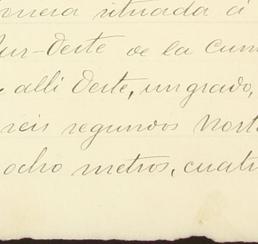 onera situada á
ur-Oeste de la Cum
alli Oeste, un grado,
seis segundos Nort
ocho metros, cuatr